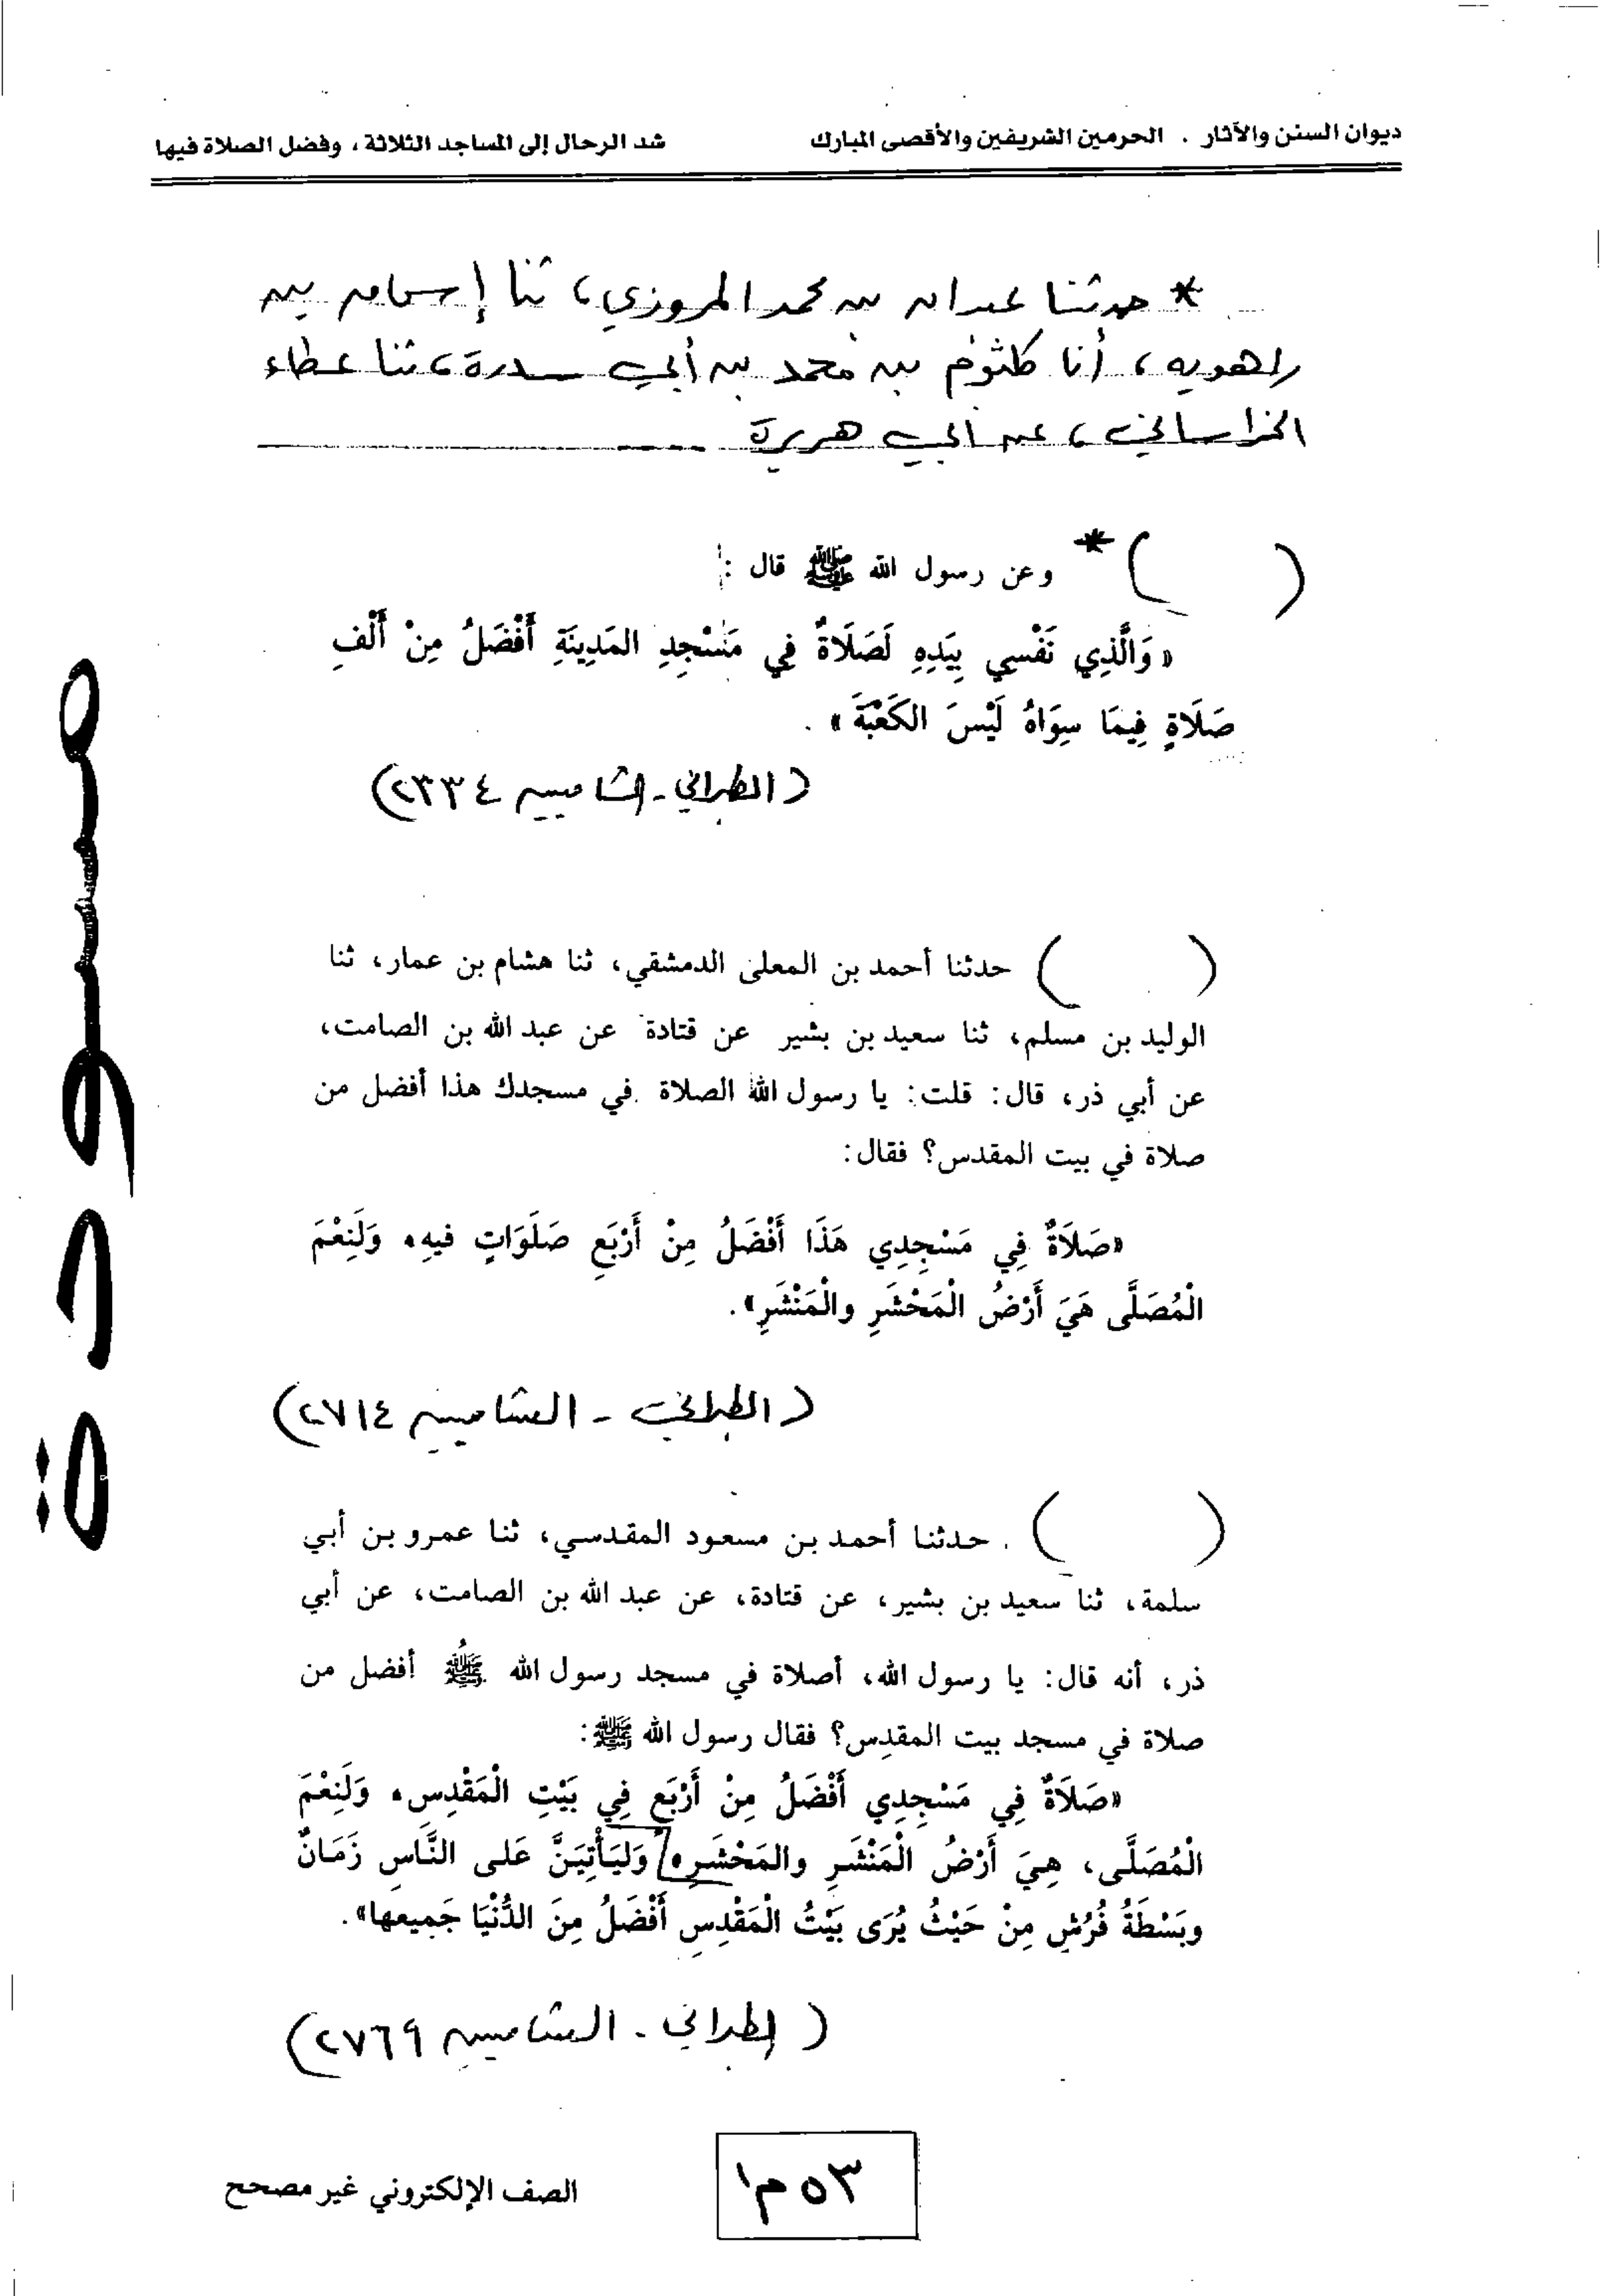 ديوان السنن والآثار . الحرمين الشريفين والأقصى المبارك
شد الرحال إلى المساجد الثلاثة، وفضل الصلاة فيها
* حدثنا عبدان بن محمد المروزي، ثنا إسحاق بن
راهويه، أنا كلثوم بن محمد بن أبي سدرة، ثنا عطاء
الخراساني، عن أبي هريرة
( )* وعن رسول الله ﷺ قال :
« وَالَّذِي نَفْسي بِيَدِهِ لَصَلَاةٌ فِي مَسْجِدِ المَدِينَةِ أَفْضَلُ مِنْ أَلْفِ
صَلَاةٍ فِيمَا سِوَاهُ لَيْسَ الكَعْبَةَ » .
( الطبراني - الشاميين ٢٣٣٤)
( ) حدثنا أحمد بن المعلى الدمشقي، ثنا هشام بن عمار، ثنا
الوليد بن مسلم، ثنا سعيد بن بشير عن قتادة عن عبد الله بن الصامت،
عن أبي ذر، قال: قلت: يا رسول الله الصلاة في مسجدك هذا أفضل من
صلاة في بيت المقدس؟ فقال:
«صَلَاةٌ فِي مَسْجِدِي هَذَا أَفْضَلُ مِنْ أَرْبَعِ صَلَوَاتٍ فيهِ، وَلَنِعْمَ
الْمُصَلَّى هَيَ أَرْضُ الْمَحْشَرِ والْمَنْشَرِ».
( الطبراني - الشاميين ٢٧١٤)
( ) . حدثنا أحمد بن مسعود المقدسي، ثنا عمرو بن أبي
سلمة، ثنا سعيد بن بشير، عن قتادة، عن عبد الله بن الصامت، عن أبي
ذر، أنه قال: يا رسول الله، أصلاة في مسجد رسول الله ﷺ أفضل من
صلاة في مسجد بيت المقدس؟ فقال رسول الله ﷺ:
«صَلَاةٌ فِي مَسْجِدِي أَفْضَلُ مِنْ أَرْبَعٍ فِي بَيْتِ الْمَقْدِسِ، وَلَنِعْمَ
الْمُصَلَّى، هِيَ أَرْضُ الْمَنْشَرِ والمَحْشَرِ، وَلَيَأْتِيَنَّ عَلى النَّاسِ زَمَانٌ
وبَسْطَةُ فُرُشٍ مِنْ حَيْثُ يُرَى بَيْتُ الْمَقْدِسِ أَفْضَلُ مِنَ الدُّنْيَا جَمِيعها».
( الطبراني - الشاميين ٢٧٦٩)
٥٣ م١
الصف الإلكتروني غير مصحح
مسودة